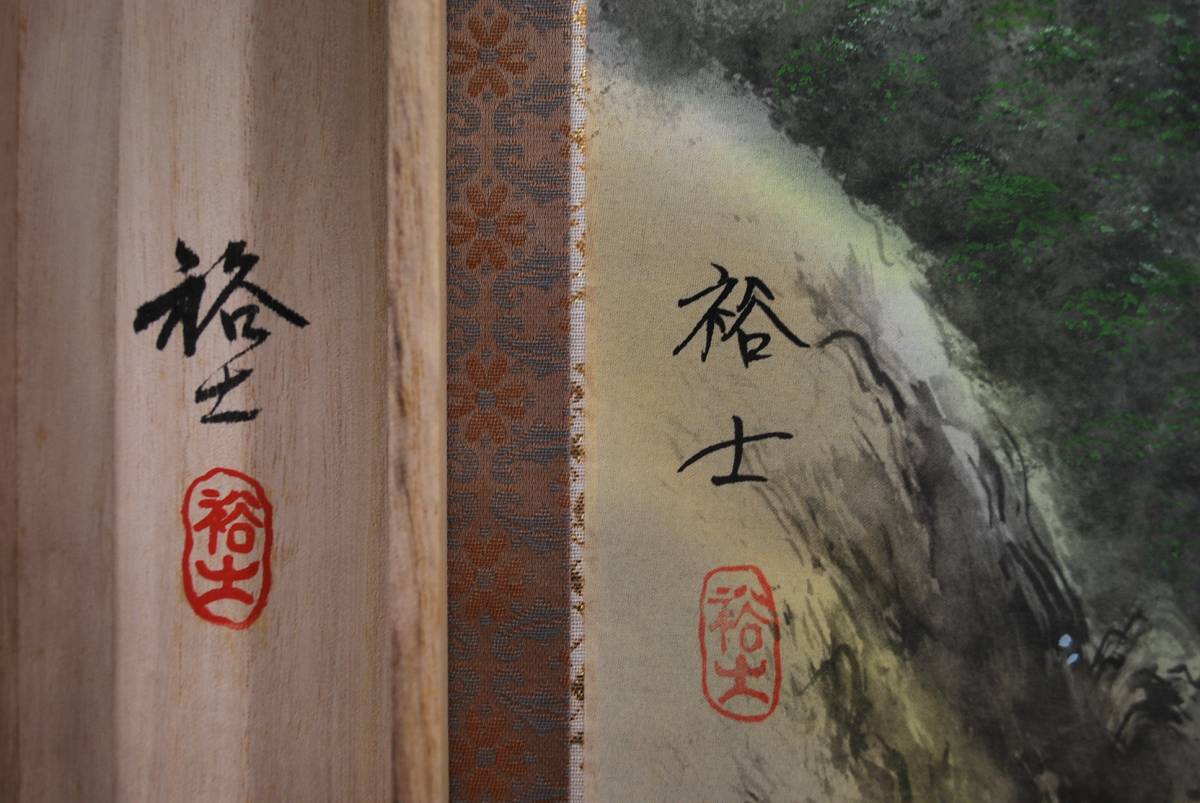 裕士
裕士
裕士
裕士